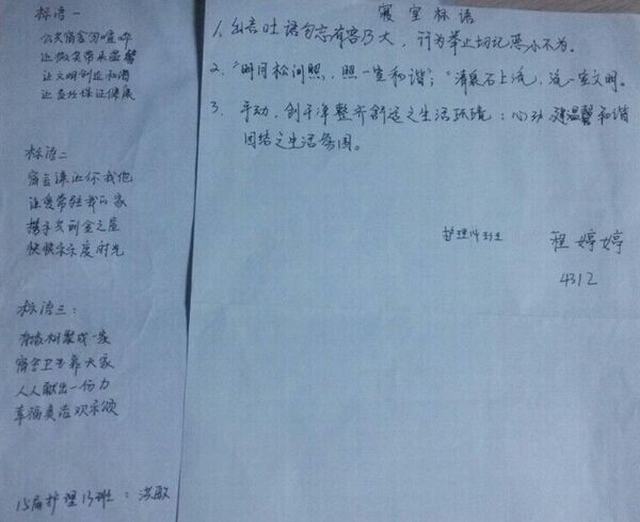 标语一
公共宿舍勿喧哗
让微笑带来温馨
让文明创造和谐
让查坊保证健康
标语二
宿舍涞让你我他
让爱带驻我们家
携手共创舍之星
快快乐乐度时光
标语三:
有缘相聚成一家
宿舍卫生靠大家
人人献出一份力
幸福美满欢乐颂
15届护理13班:洪敏
寝室标语
1. 出言吐语勿忘有容乃大,行为举止切记恶小不为。
2. "明月松间照,照一室和谐;"清泉石上流,流一室文明。
3. 手动,创干净整齐舒适之生活环境;心动 建温馨和谐
团结之生活氛围。
护理 班
程婷婷
4312